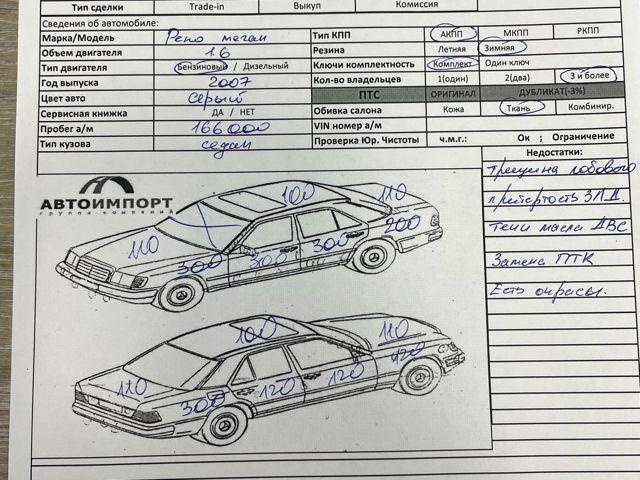 Тип сделки Trade-in Выкуп Комиссия
Сведения об автомобиле:
Марка/Модель Рено меган Тип КПП АКПП МКПП РКПП
Объем двигателя 1.6 Резина Летняя Зимняя
Тип двигателя Бензиновый / Дизельный Ключи комплектность Комплект Один ключ
Год выпуска 2007 Кол-во владельцев 1(один) 2(два) 3 и более
Цвет авто серый ПТС ОРИГИНАЛ ДУБЛИКАТ(-3%)
Сервисная книжка ДА / НЕТ Обивка салона Кожа Ткань Комбинир.
Пробег а/м 166000 VIN номер а/м
Тип кузова седан Проверка Юр. Чистоты ч.м.г.: Ок ; Ограничение
Недостатки:
трещина лобового
притертость ЗЛД.
течи масла ДВС
Замена ПТК
Есть окрасы.
АВТОИМПОРТ
группа компаний
100 110
110 300 300 300 200
100 110
110 300 120 120 120